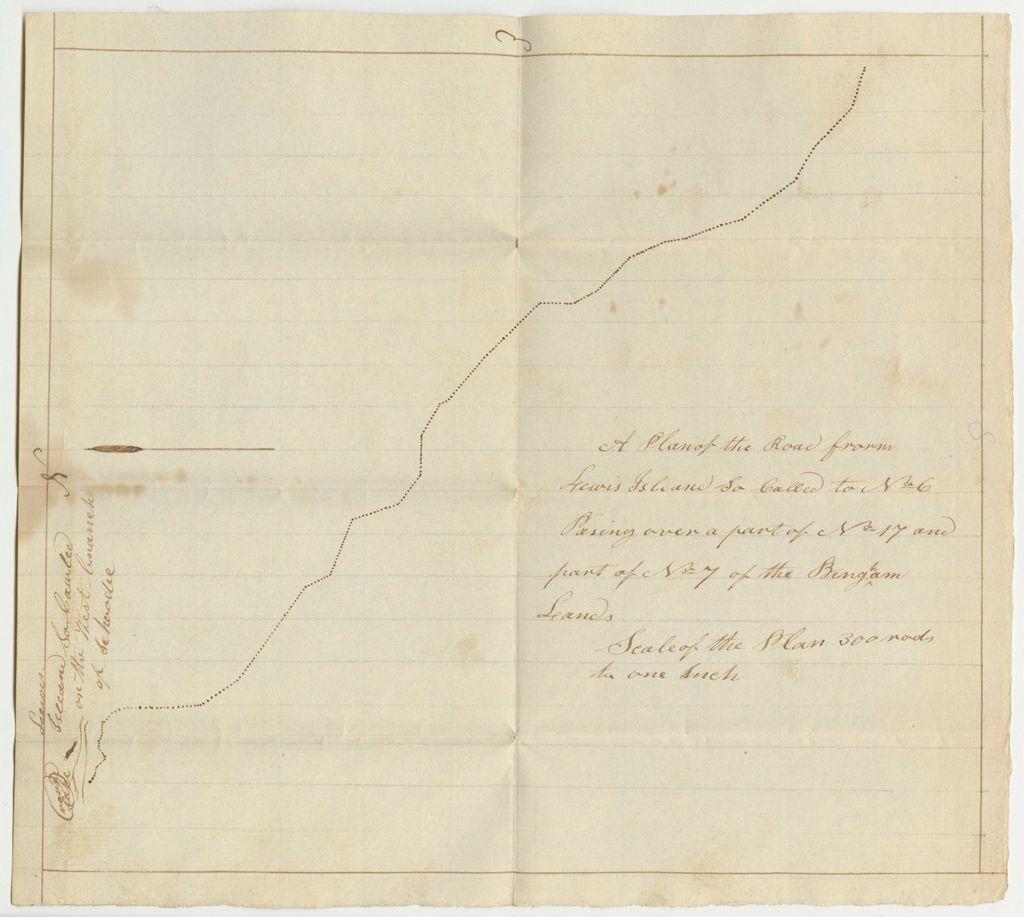 3
A Plan of the Road frorm
Lewis Isleand So Called to No 6
Pasing over a part of No 17 and
part of No 7 of the Bingham
Leands
Scale of the Plan 300 rods
to one Inch
N
Leewes
Isleand So Caurled
on the West branch
of Schoodic
Lake